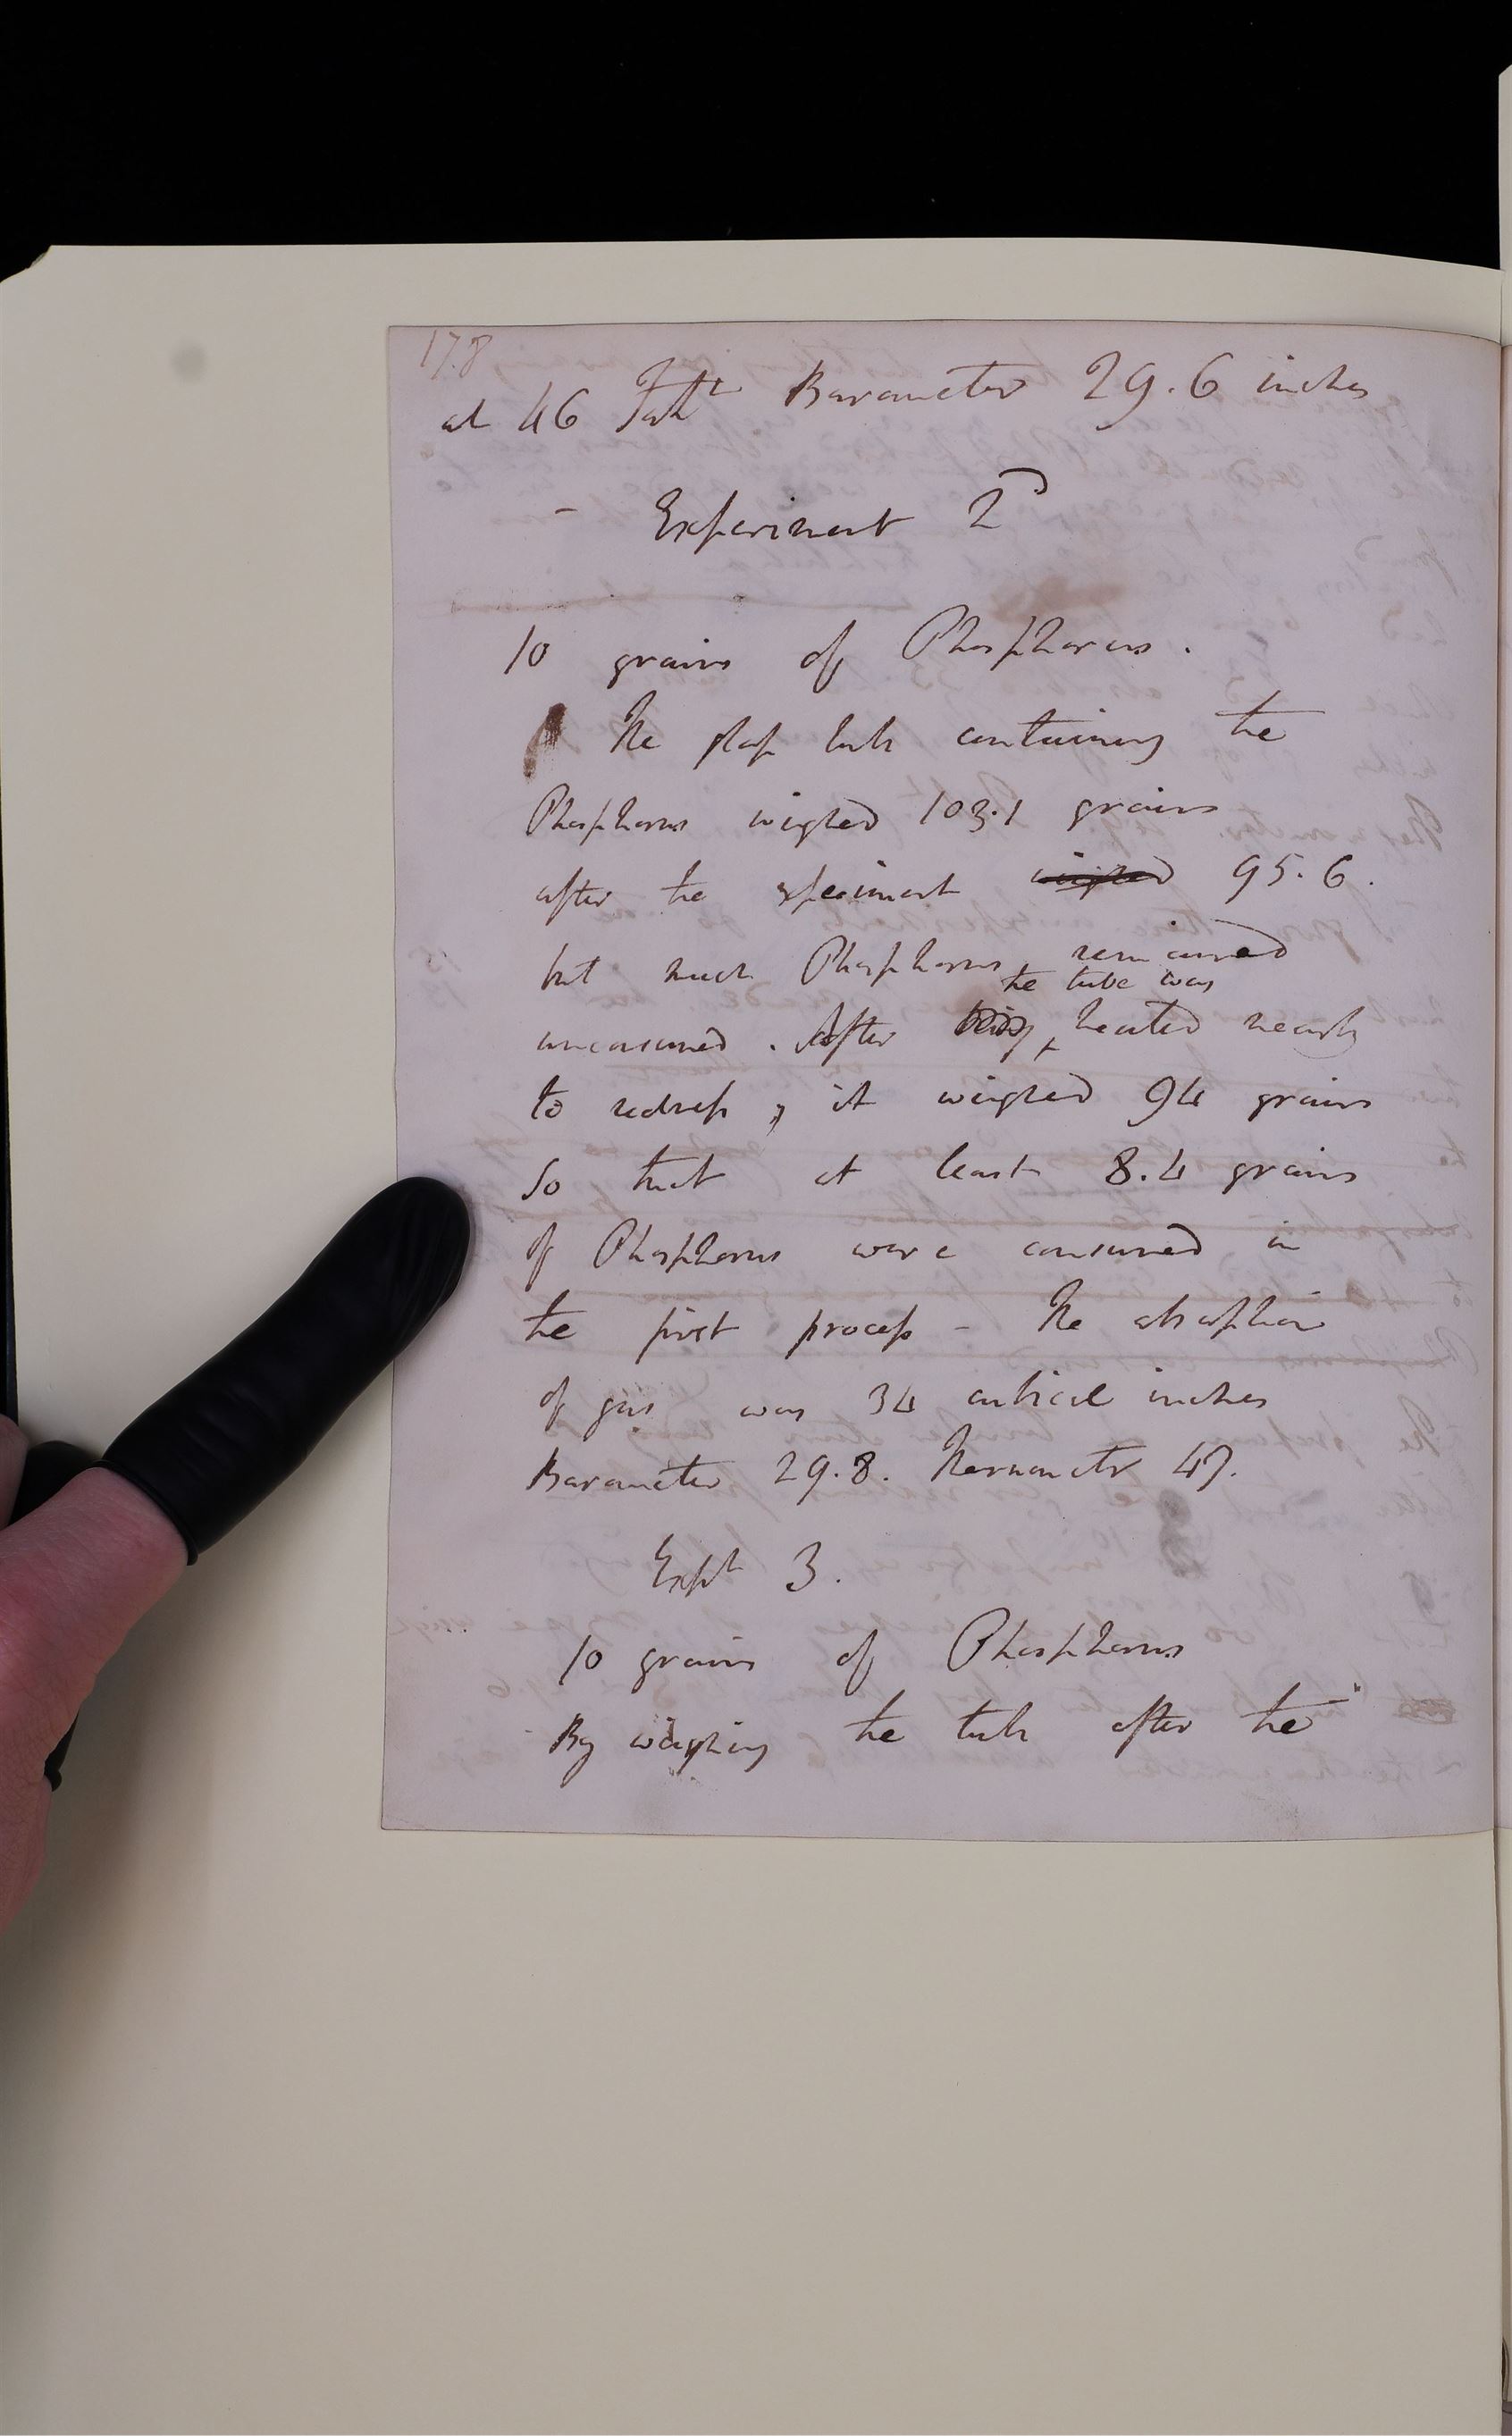 178
at 46 Faht Barometer 29.6 inches
- Experiment 2D
10 grains of Phosphorus.
The glass tube containing the
Phosphorus weighed 103.1 grains
after the experiment weighed 95.6.
but much Phosphorus remained
the tube was
unconsumed. After being heated nearly
to redness, it weighed 94 grains
So that at least 8.4 grains
of Phosphorus were consumed in
the first process - The absorption
of gas was 34 cubical inches
Barometer 29.8. Thermometer 47.
Expt 3.
10 grains of Phosphorus
By weighing the tube after the